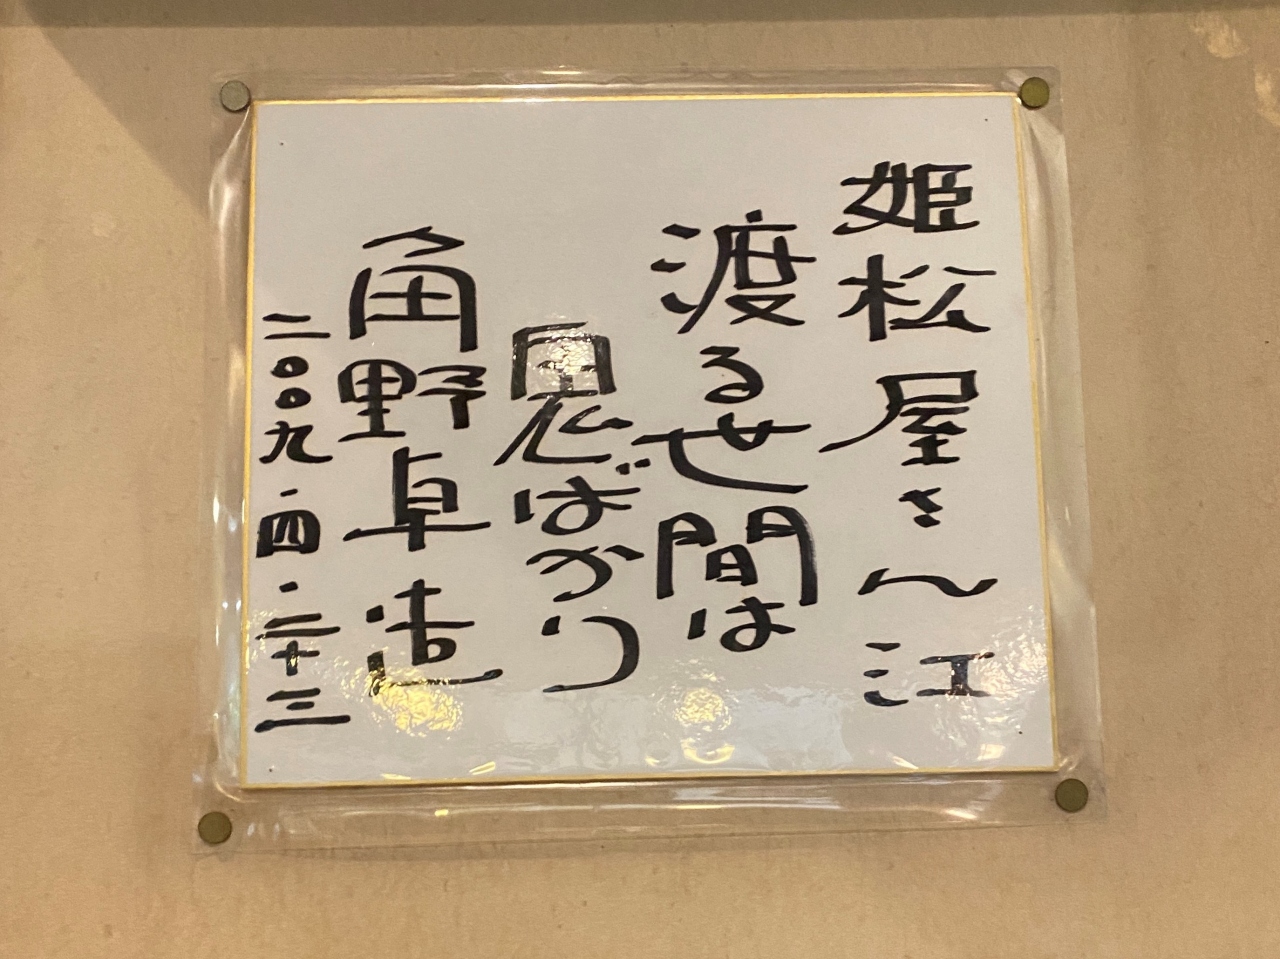 姫松屋さん江
渡る世間は
鬼ばかり
角野卓造
二〇〇九.四.二十三